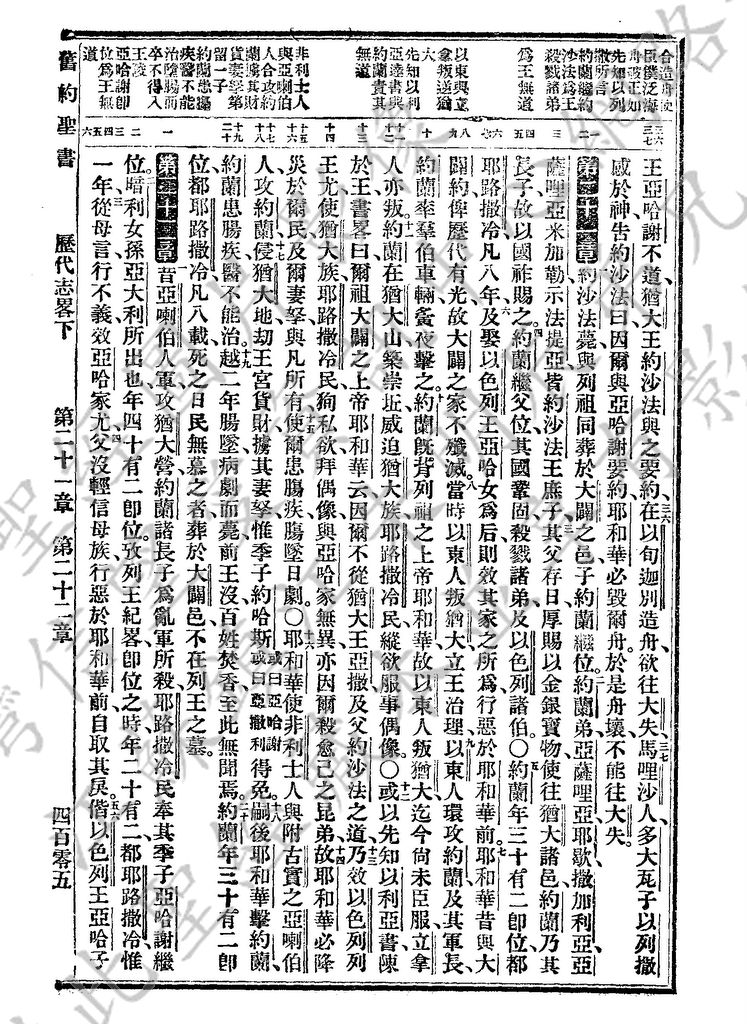 合造舟使
臣僕泛海
舟破正如
先知以列
撒所言
約蘭繼約
沙法為王
殺戮諸弟
為王無道
以東與立
拿叛逆猶
大
先知以利
亞達書與
約蘭責其
無道
非利士人
與亞喇伯
人合攻約
蘭擄其財
貨妻孥第
留一子
約蘭患腸
疾醫不能
治腸墜而
卒不得入
王陵
亞哈謝卽
位為王無
道
王亞哈謝不道猶大王約沙法與之要約在以旬迦別造舟欲往大失馬哩沙人多大瓦子以列撒
感於神告約沙法曰因爾與亞哈謝要約耶和華必毀爾舟於是舟壞不能往大失
第二十一章約沙法薨與列祖同葬於大闢之邑子約蘭繼位約蘭弟亞薩哩亞耶歇撒加利亞亞
薩哩亞米加勒示法提亞皆約沙法王庶子其父存日厚賜以金銀寶物使往猶大諸邑約蘭乃其
長子故以國祚賜之約蘭繼父位其國鞏固殺戮諸弟及以色列諸伯〇約蘭年三十有二卽位都
耶路撒冷凡八年及娶以色列王亞哈女為后則效其家之所為行惡於耶和華前耶和華昔與大
闢約俾歷代有光故大闢之家不殲滅當時以東人叛猶大立王治理以東人環攻約蘭及其軍長
約蘭率羣伯車輛夤夜擊之約蘭旣背列祖之上帝耶和華故以東人叛猶大迄今尚未臣服立拿
人亦叛約蘭在猶大山築崇坵威迫猶大族耶路撒冷民縱欲服事偶像〇或以先知以利亞書陳
於王書畧曰爾祖大闢之上帝耶和華云因爾不從猶大王亞撒及父約沙法之道乃效以色列列
王尤使猶大族耶路撒冷民狥私欲拜偶像與亞哈家無異亦因爾殺愈己之昆弟故耶和華必降
災於爾民及爾妻孥與凡所有使爾患腸疾腸墜日劇〇耶和華使非利士人與附古實之亞喇伯
人攻約蘭侵猶大地劫王宮貨財擄其妻孥惟季子約哈斯或曰亞哈謝或曰亞撒利得免嗣後耶和華擊約蘭
約蘭患腸疾醫不能治越二年腸墜病劇而薨前王沒百姓焚香至此無聞焉約蘭年三十有二卽
位都耶路撒冷凡八載死之日民無慕之者葬於大闢邑不在列王之墓
第二十二章昔亞喇伯人軍攻猶大營約蘭諸長子為亂軍所殺耶路撒冷民奉其季子亞哈謝繼
位暗利女孫亞大利所出也年四十有二卽位攷列王紀畧卽位之時年二十有二都耶路撒冷惟
一年從母言行不義效亞哈家尤父沒輕信母族行惡於耶和華前自取其戾偕以色列王亞哈子
舊約聖書 歷代志畧下 第二十一章 第二十二章 四百零五